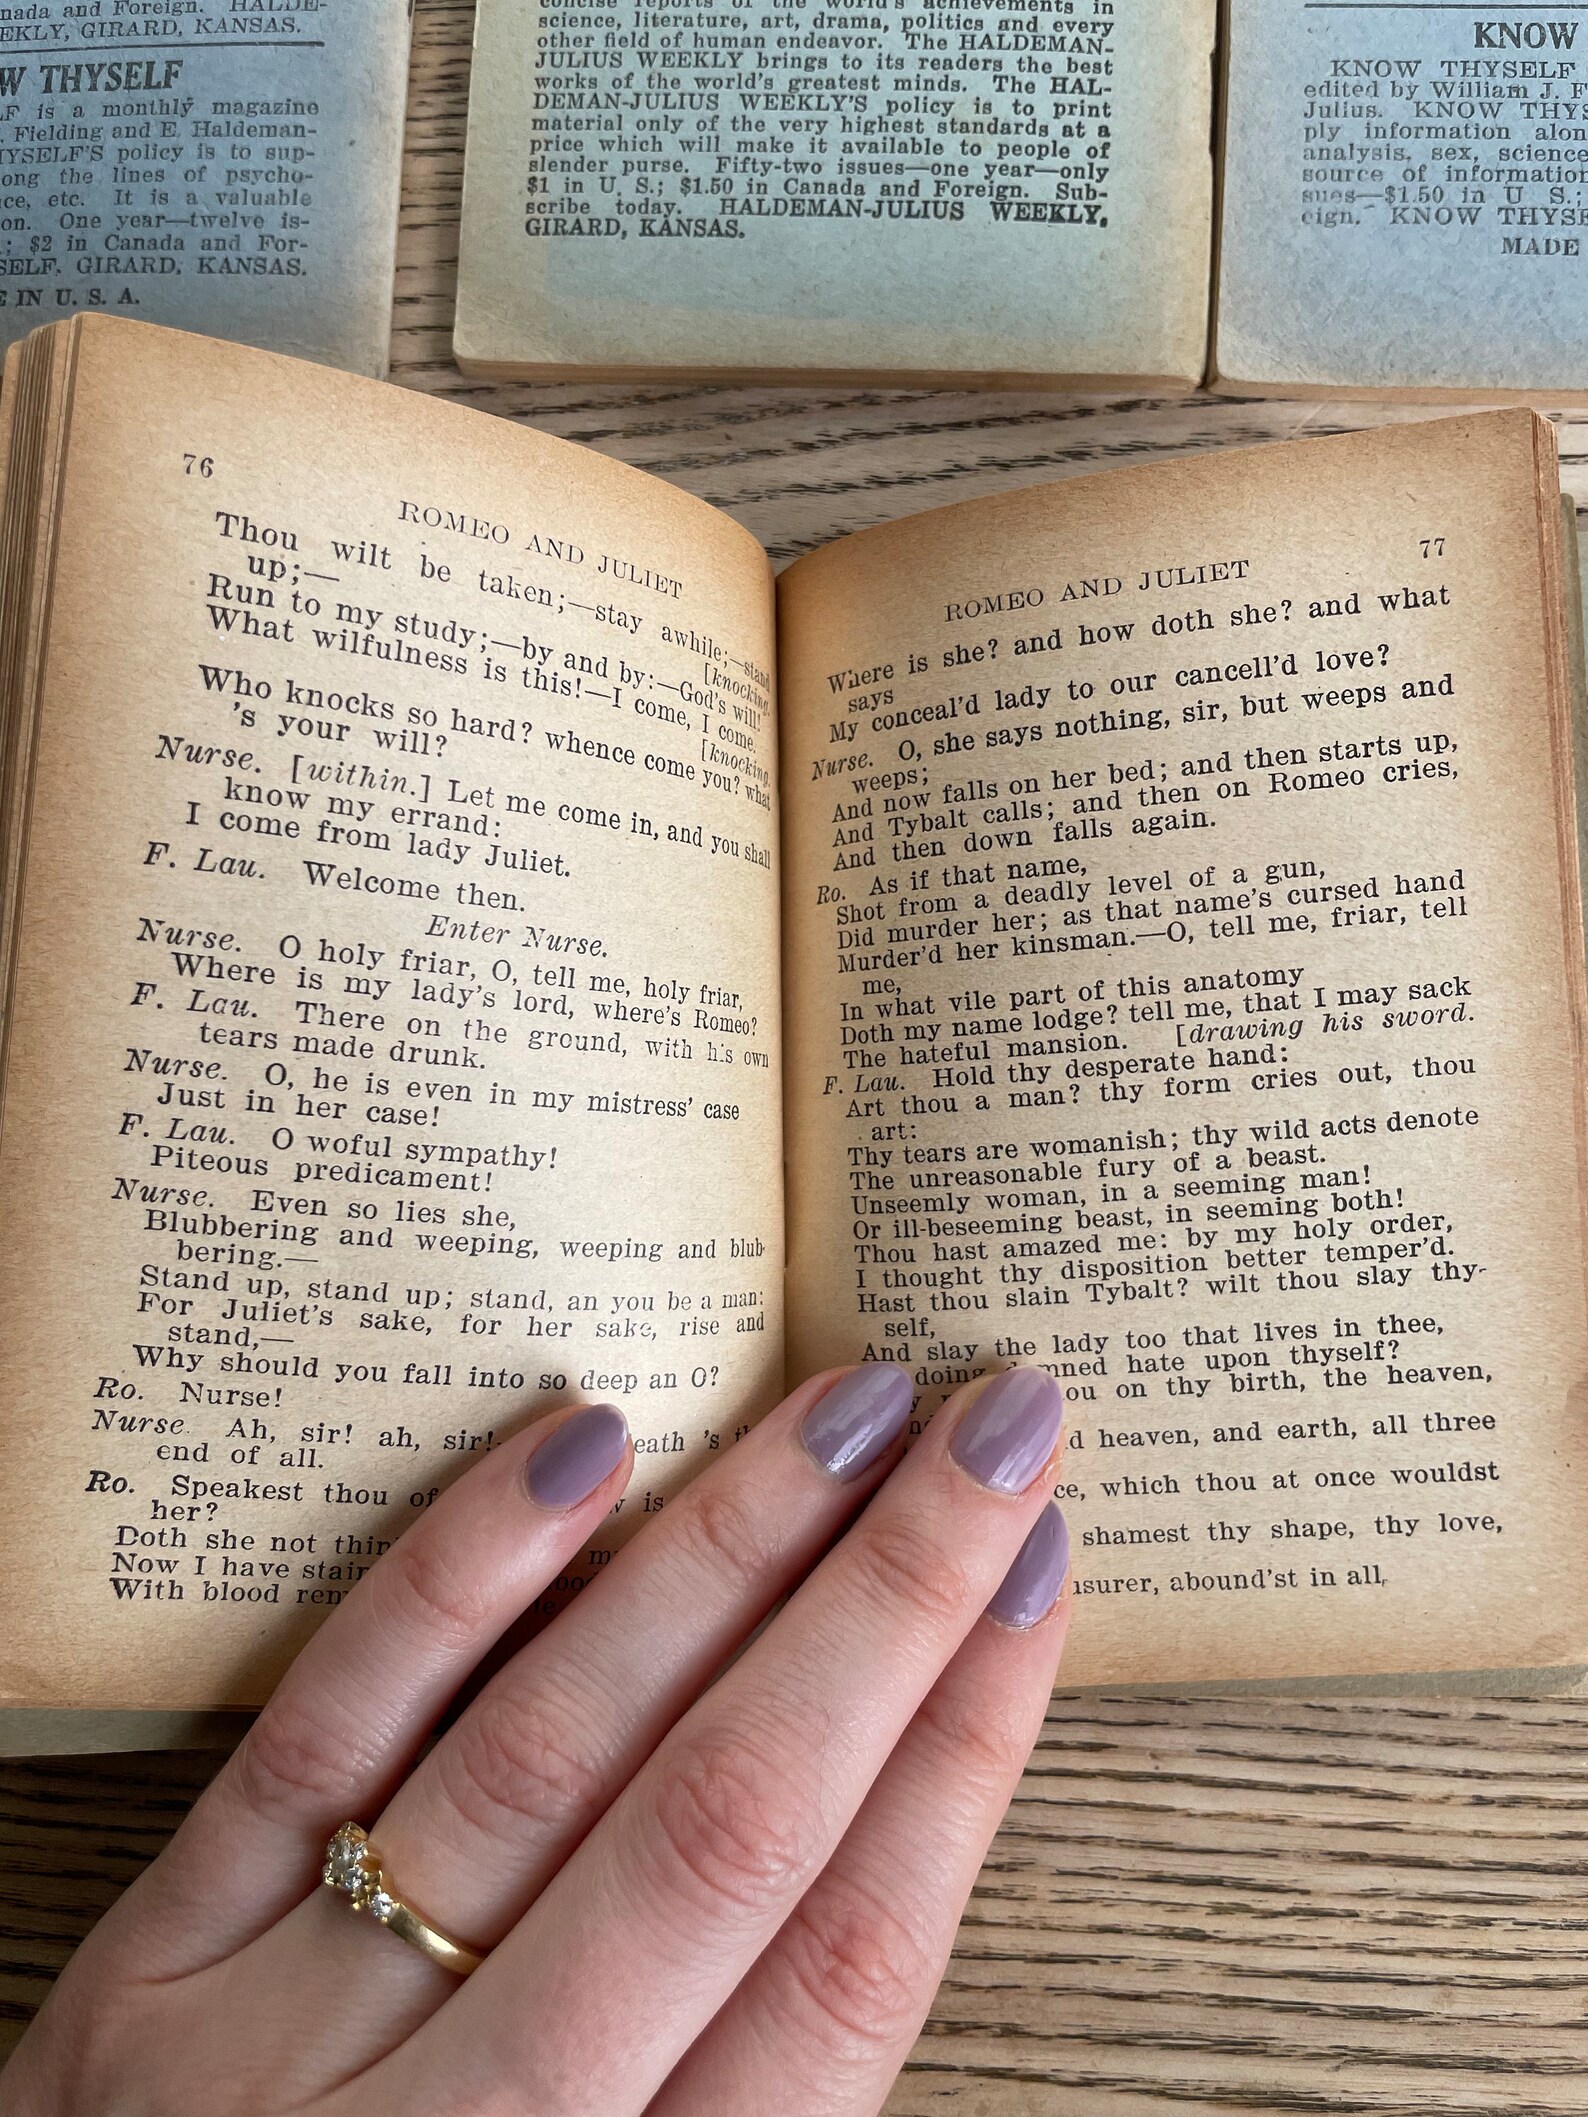 nada and Foreign. HALDE-
EKLY, GIRARD, KANSAS.
W THYSELF
LF is a monthly magazine
. Fielding and E. Haldeman-
HYSELF'S policy is to sup-
ong the lines of psycho-
ce, etc. It is a valuable
on. One year—twelve is-
.; $2 in Canada and For-
SELF, GIRARD, KANSAS.
E IN U. S. A.
concise reports of the world's achievements in
science, literature, art, drama, politics and every
other field of human endeavor. The HALDEMAN-
JULIUS WEEKLY brings to its readers the best
works of the world's greatest minds. The HAL-
DEMAN-JULIUS WEEKLY'S policy is to print
material only of the very highest standards at a
price which will make it available to people of
slender purse. Fifty-two issues—one year—only
$1 in U. S.; $1.50 in Canada and Foreign. Sub-
scribe today. HALDEMAN-JULIUS WEEKLY,
GIRARD, KANSAS.
KNOW
KNOW THYSELF
edited by William J. F
Julius. KNOW THYS
ply information alon
analysis, sex, science
source of information
sues—$1.50 in U S.;
eign. KNOW THYSE
MADE
76
ROMEO AND JULIET
Thou wilt be taken;—stay awhile;—stand
up;— [knocking.
Run to my study;—by and by:—God's will!
What wilfulness is this!—I come, I come.
[knocking.
Who knocks so hard? whence come you? what
's your will?
Nurse. [within.] Let me come in, and you shall
know my errand:
I come from lady Juliet.
F. Lau. Welcome then.
Enter Nurse.
Nurse. O holy friar, O, tell me, holy friar,
Where is my lady's lord, where's Romeo?
F. Lau. There on the ground, with his own
tears made drunk.
Nurse. O, he is even in my mistress' case
Just in her case!
F. Lau. O woful sympathy!
Piteous predicament!
Nurse. Even so lies she,
Blubbering and weeping, weeping and blub-
bering.—
Stand up, stand up; stand, an you be a man:
For Juliet's sake, for her sake, rise and
stand,—
Why should you fall into so deep an O?
Ro. Nurse!
Nurse. Ah, sir! ah, sir!- eath 's th
end of all.
Ro. Speakest thou of w is
her?
Doth she not thin
Now I have stain
With blood rem
77
ROMEO AND JULIET
Where is she? and how doth she? and what
says
My conceal'd lady to our cancell'd love?
Nurse. O, she says nothing, sir, but weeps and
weeps;
And now falls on her bed; and then starts up,
And Tybalt calls; and then on Romeo cries,
And then down falls again.
Ro. As if that name,
Shot from a deadly level of a gun,
Did murder her; as that name's cursed hand
Murder'd her kinsman.—O, tell me, friar, tell
me,
In what vile part of this anatomy
Doth my name lodge? tell me, that I may sack
The hateful mansion. [drawing his sword.
F. Lau. Hold thy desperate hand:
Art thou a man? thy form cries out, thou
art:
Thy tears are womanish; thy wild acts denote
The unreasonable fury of a beast.
Unseemly woman, in a seeming man!
Or ill-beseeming beast, in seeming both!
Thou hast amazed me: by my holy order,
I thought thy disposition better temper'd.
Hast thou slain Tybalt? wilt thou slay thy-
self,
And slay the lady too that lives in thee,
doing mned hate upon thyself?
ou on thy birth, the heaven,
d heaven, and earth, all three
ce, which thou at once wouldst
shamest thy shape, thy love,
usurer, abound'st in all,